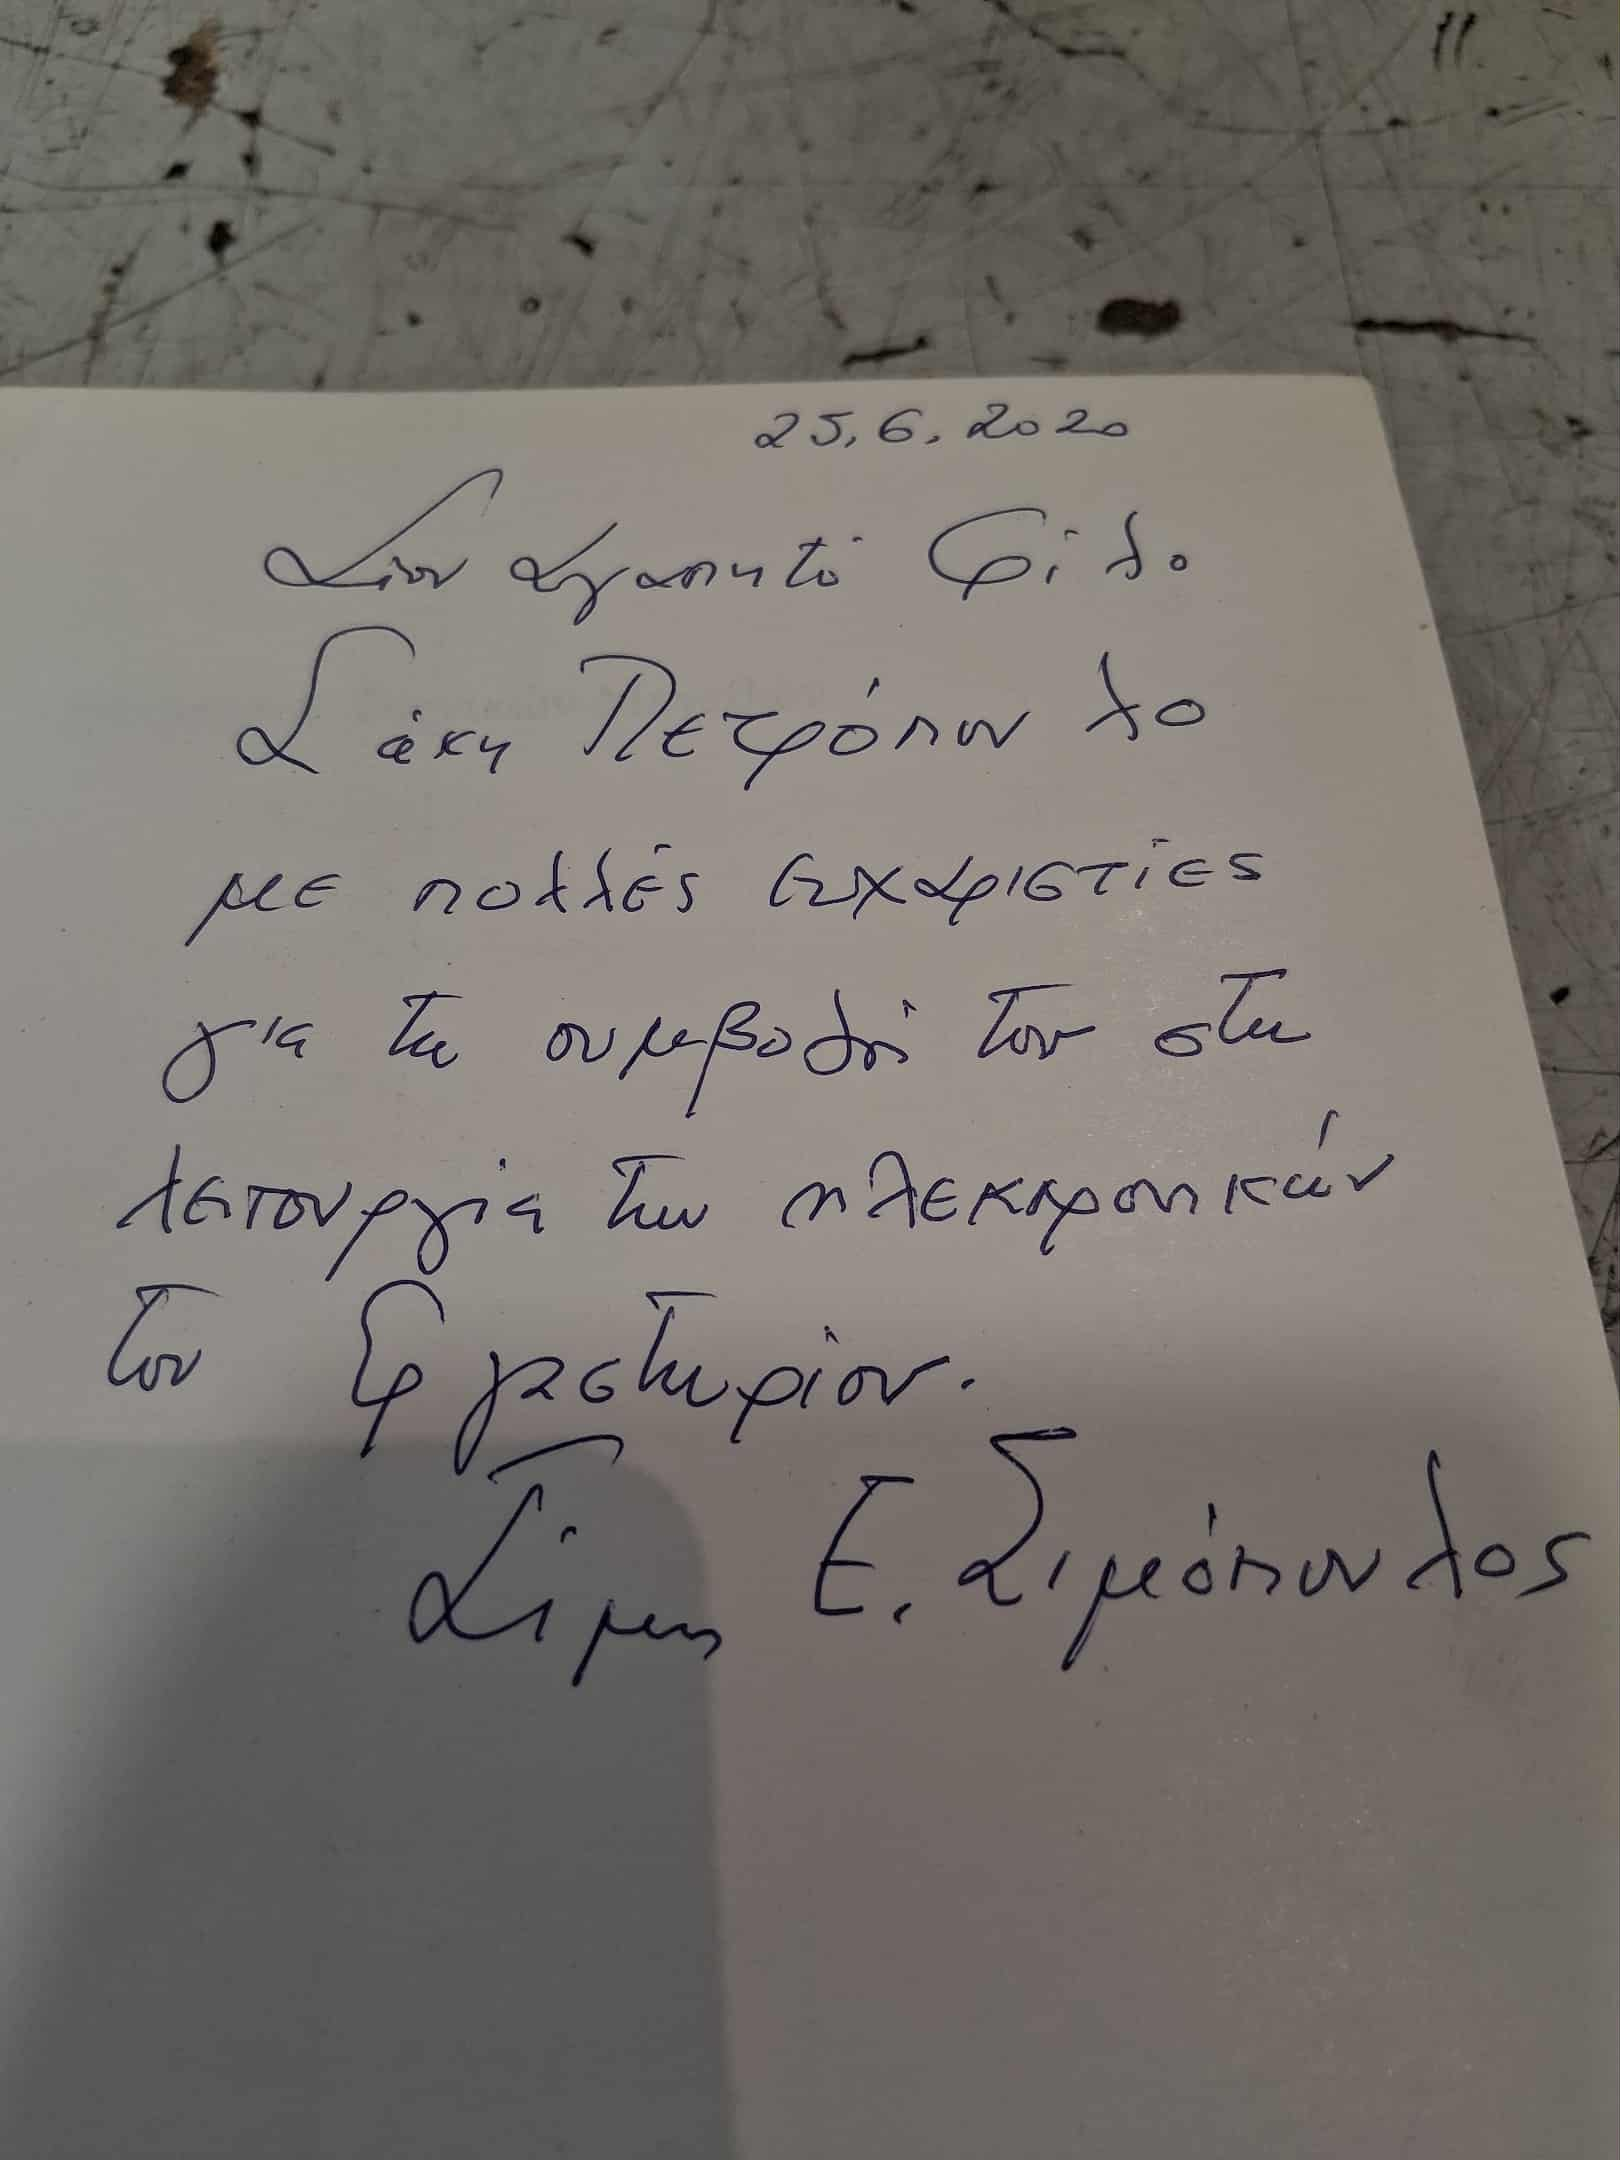 25.6.2020
Στον αγαπητό φίλο
Σάκη Πετρόπουλο
με πολλές ευχαριστίες
για τη συμβολή του στη
λειτουργία των ηλεκτρονικών
του Εργαστηρίου.
Σίμος Ε. Σιμόπουλος